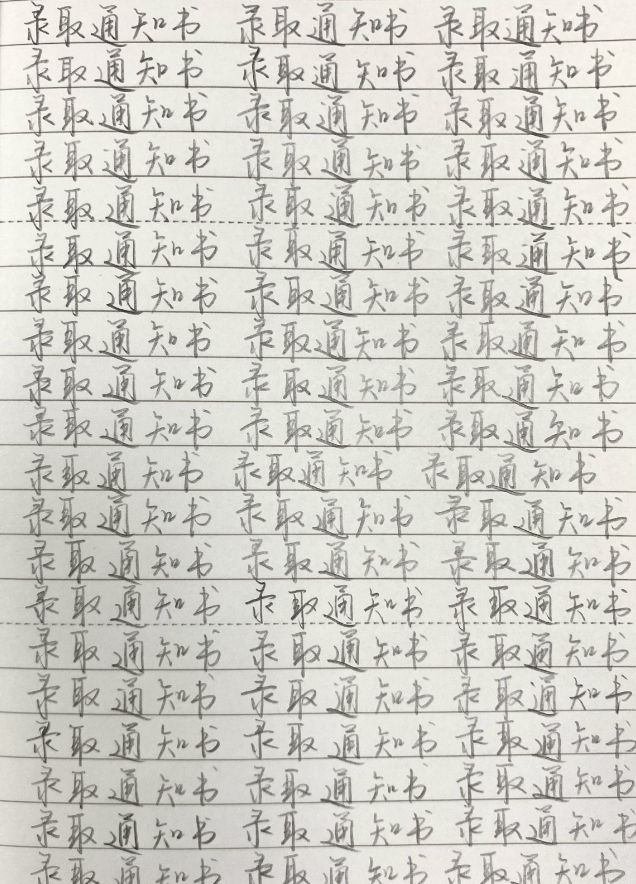 录取通知书 录取通知书 录取通知书
录取通知书 录取通知书 录取通知书
录取通知书 录取通知书 录取通知书
录取通知书 录取通知书 录取通知书
录取通知书 录取通知书 录取通知书
录取通知书 录取通知书 录取通知书
录取通知书 录取通知书 录取通知书
录取通知书 录取通知书 录取通知书
录取通知书 录取通知书 录取通知书
录取通知书 录取通知书 录取通知书
录取通知书 录取通知书 录取通知书
录取通知书 录取通知书 录取通知书
录取通知书 录取通知书 录取通知书
录取通知书 录取通知书 录取通知书
录取通知书 录取通知书 录取通知书
录取通知书 录取通知书 录取通知书
录取通知书 录取通知书 录取通知书
录取通知书 录取通知书 录取通知书
录取通知书 录取通知书 录取通知书
录取通知书 录取通知书 录取通知书